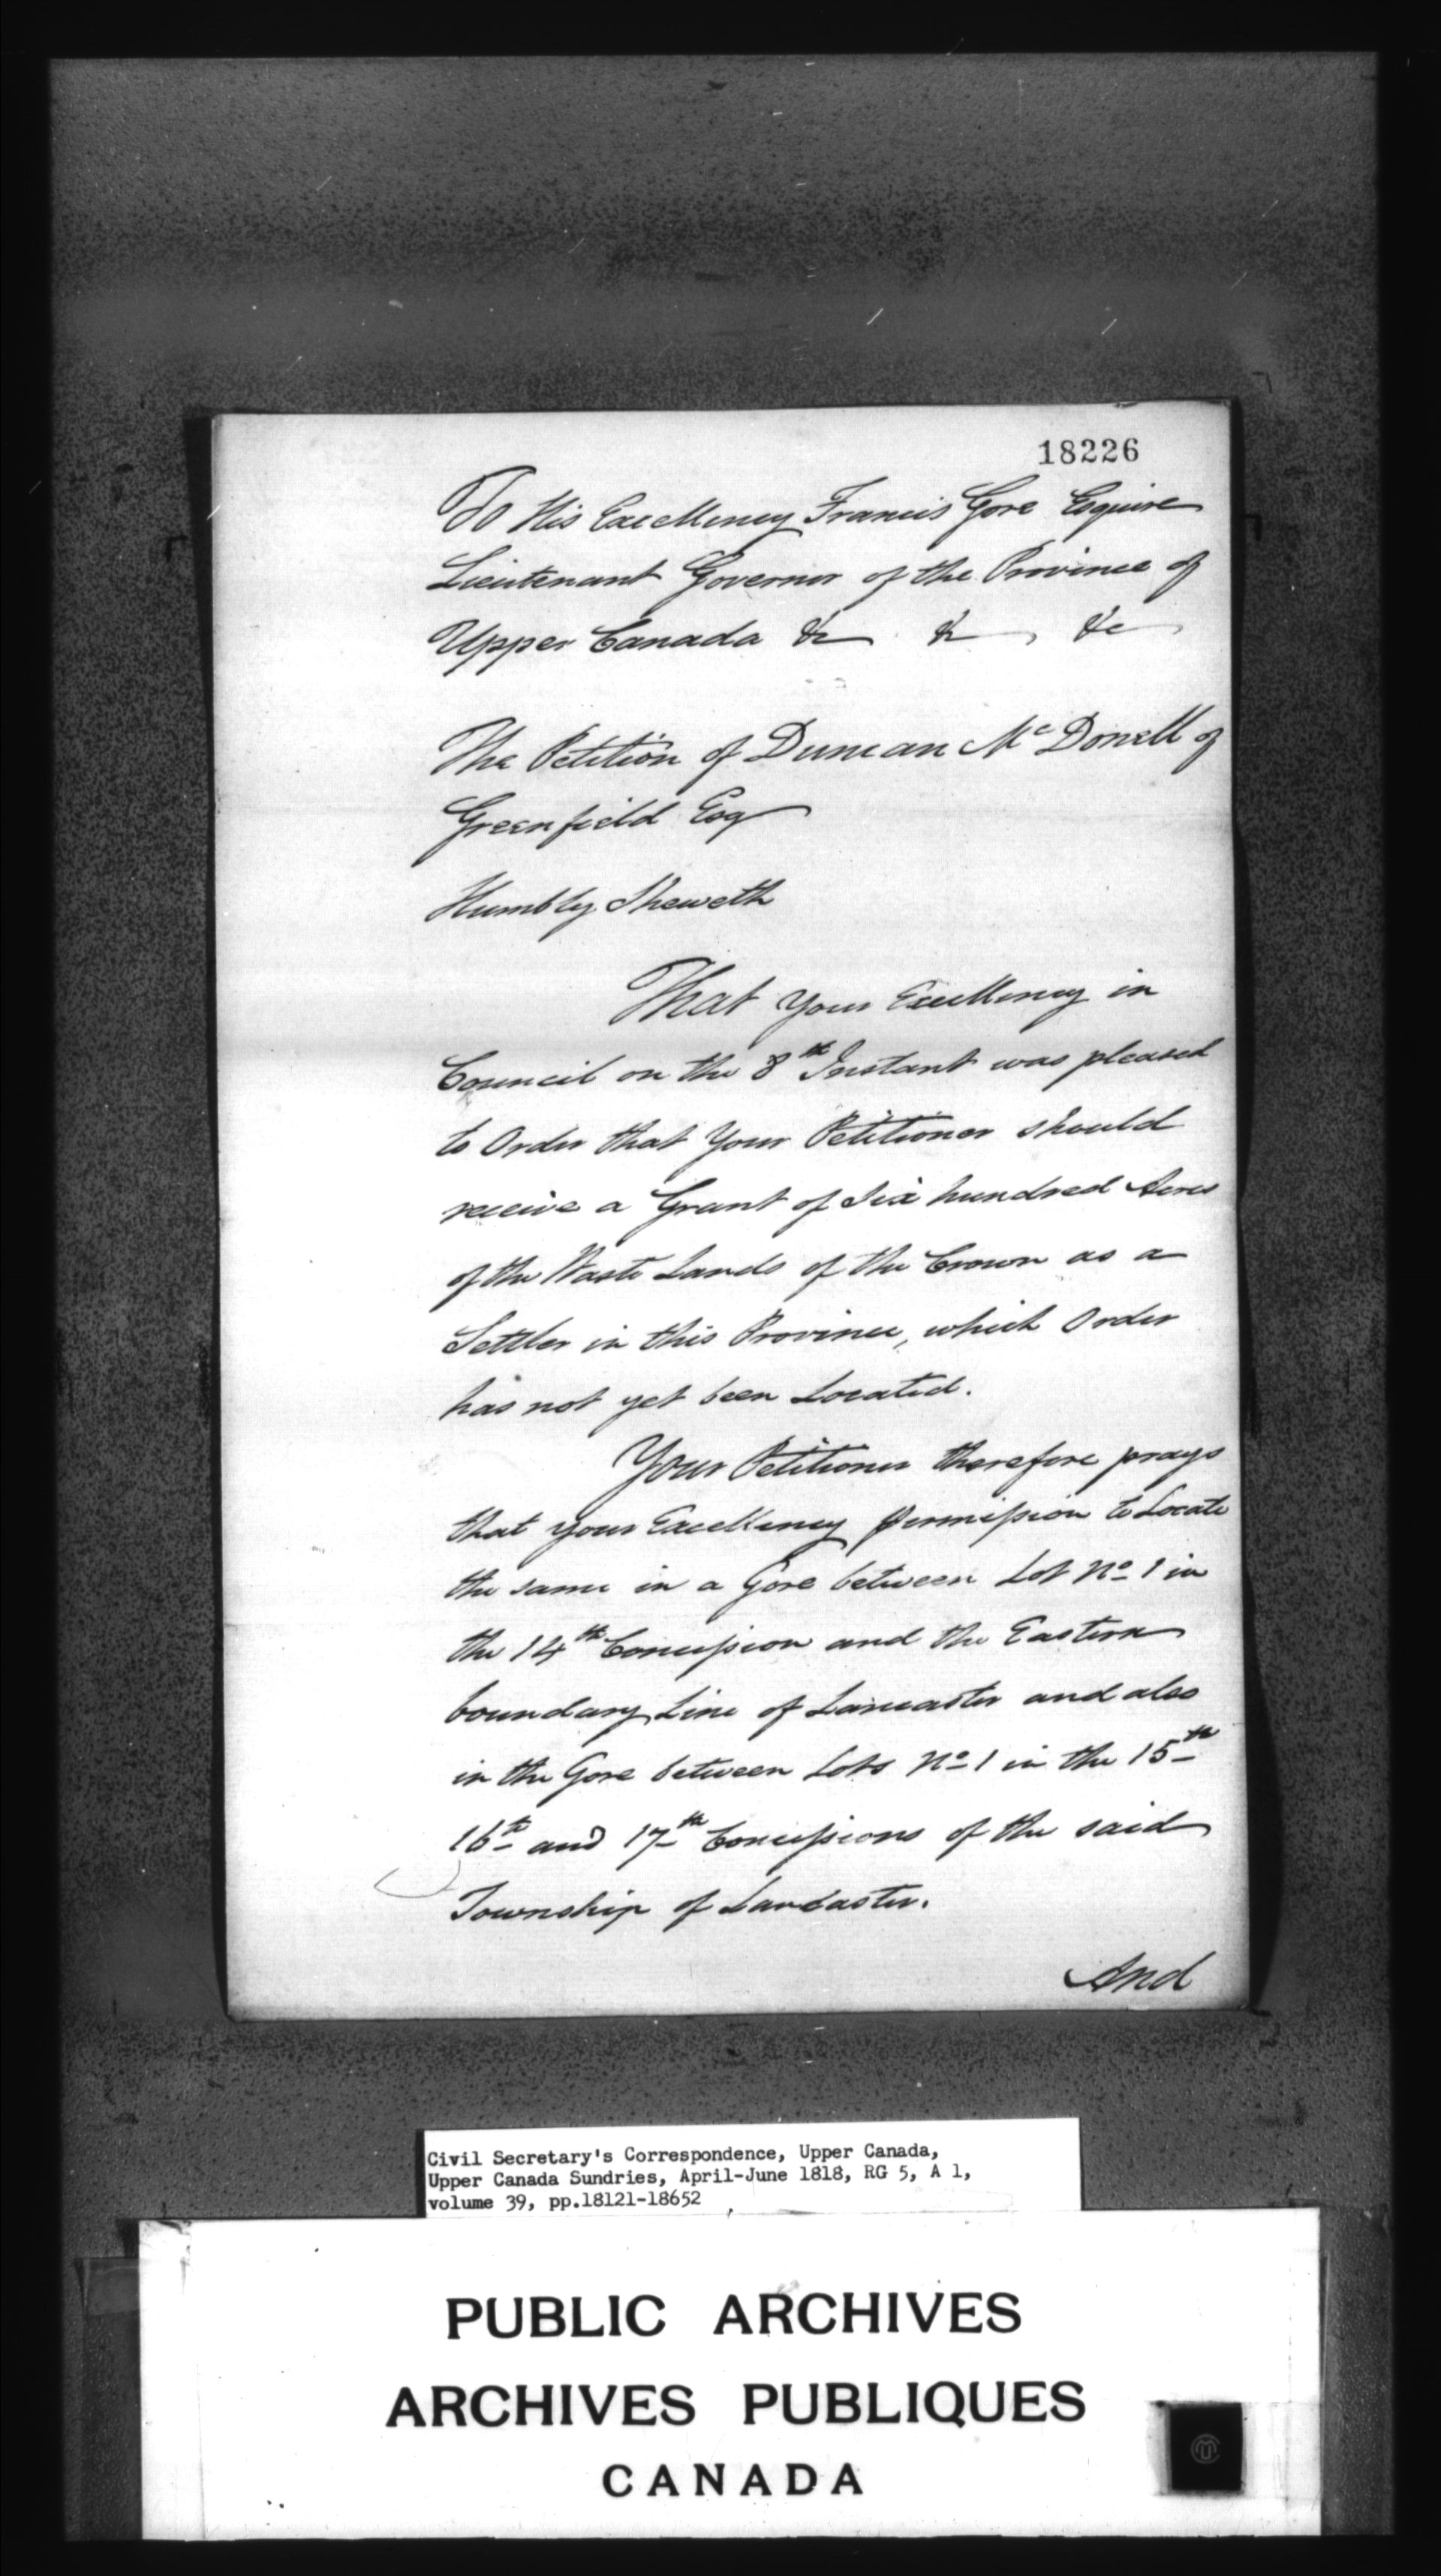 18226
To His Excellency Francis Gore Esquire
Lieutenant Governor of the Province of
Upper Canada &c &c, &c
The Petition of Duncan McDonell of
Greenfield Esq
Humbly Sheweth
That your Excellency in
Council on the 8th Instant was pleased
to Order that Your Petitioner should
receive a Grant of Six hundred Acres
of the Waste Lands of the Crown as a
Settler in this Province, which Order
has not yet been Located.
Your Petitioner therefore prays
that your Excellency permission to Locate
the same in a Gore between Lot No 1 in
the 14th Concession and the Eastern
boundary Line of Lancaster and also
in the Gore between Lots No 1 in the 15th
16th and 17th Concessions of the said
Township of Lancaster.
And
Civil Secretary's Correspondence, Upper Canada,
Upper Canada Sundries, April-June 1818, RG 5, A 1,
volume 39, pp.18121-18652
PUBLIC ARCHIVES
ARCHIVES PUBLIQUES
CANADA